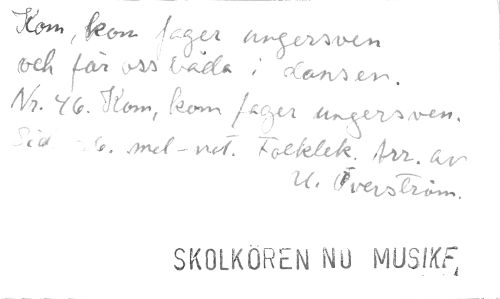 Kom, kom fager ungersven
och får oss båda i dansen.
Nr. 46. Kom, kom fager ungersven.
Sid 6. mel-not. Folklek. Arr. av
U. Överström.
SKOLKÖREN NU MUSIKF,